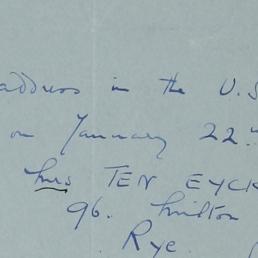 address in the U.S
on January 22
Mrs TEN EYCK
96. Milton
Rye